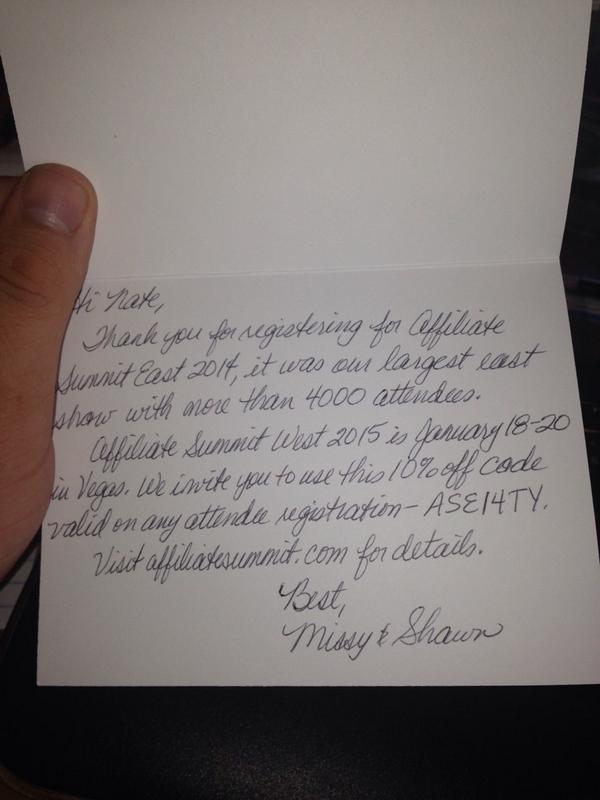 Hi Nate,
Thank you for registering for Affiliate
Summit East 2014, it was our largest east
show with more than 4000 attendees.
Affiliate Summit West 2015 is January 18-20
in Vegas. We invite you to use this 10% off code
valid on any attendee registration - ASE14TY.
Visit affiliatesummit.com for details.
Best,
Missy & Shawn